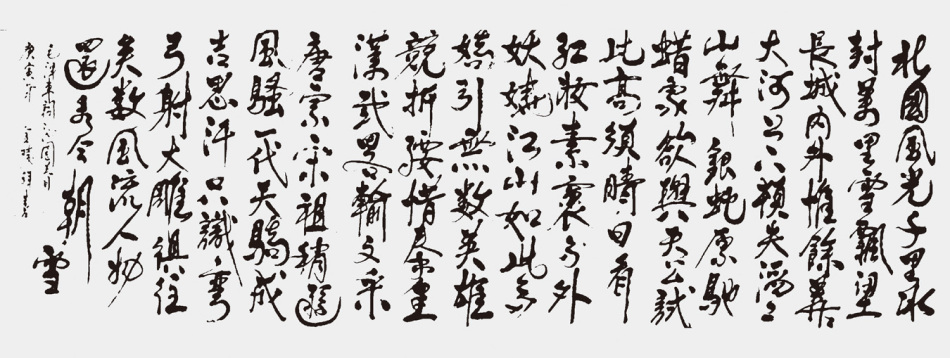 北國風光千里冰
封萬里雪飄望
長城內外惟餘莽〻
大河上下頓失滔〻
山舞銀蛇原馳
蜡象欲與天公試
比高須晴日看
紅妝素裹分外
妖嬈江山如此多
嬌引無數英雄
競折腰惜秦皇
漢武畧輸文采
唐宗宋祖稍遜
風騷一代天驕成
吉思汗只識彎
弓射大雕俱往
矣數風流人物
還看今朝
雪
毛澤東詞沁園春
庚寅年